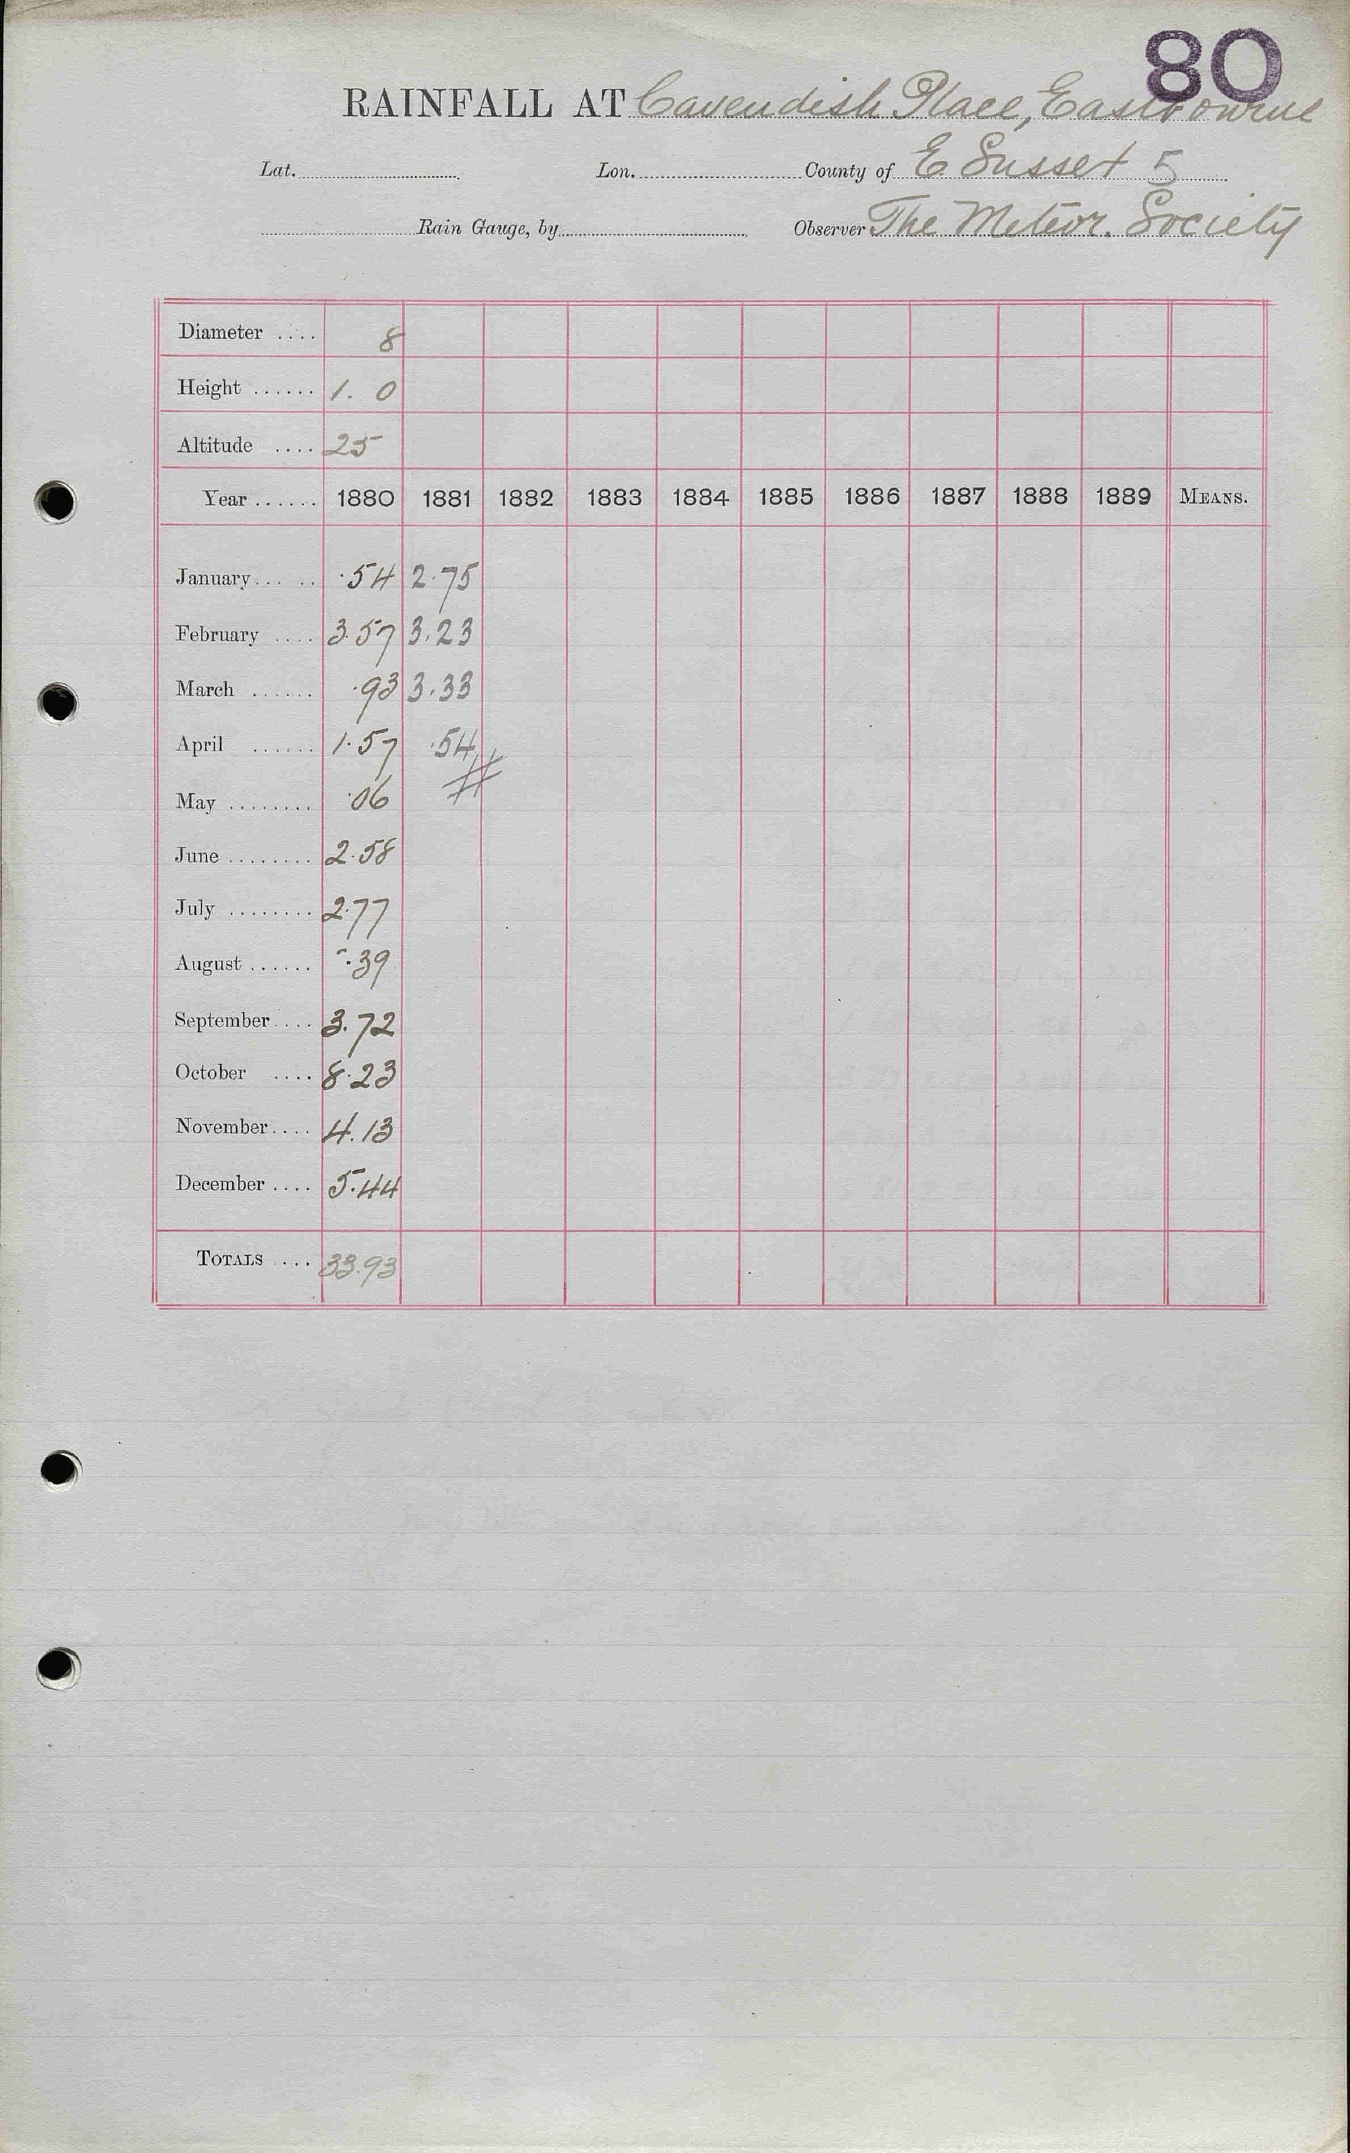 80
RAINFALL AT Cavendish Place, Eastbourne
Lat. Lon. County of E Sussex 5
Rain Gauge, by Observer The Meteor. Society
Diameter .... 8
Height ...... 1. 0
Altitude .... 25
Year ...... 1880 1881 1882 1883 1884 1885 1886 1887 1888 1889 MEANS.
January ... .. ·54 2·75
February .... 3·57 3.23
March ...... ·93 3.33
April ...... 1·57 ·54
May ........ ·06
June ........ 2·58
July ........ 2·77
August ...... ·39
September .... 3.72
October .... 8·23
November .... 4.13
December .... 5.44
TOTALS .... 33.93